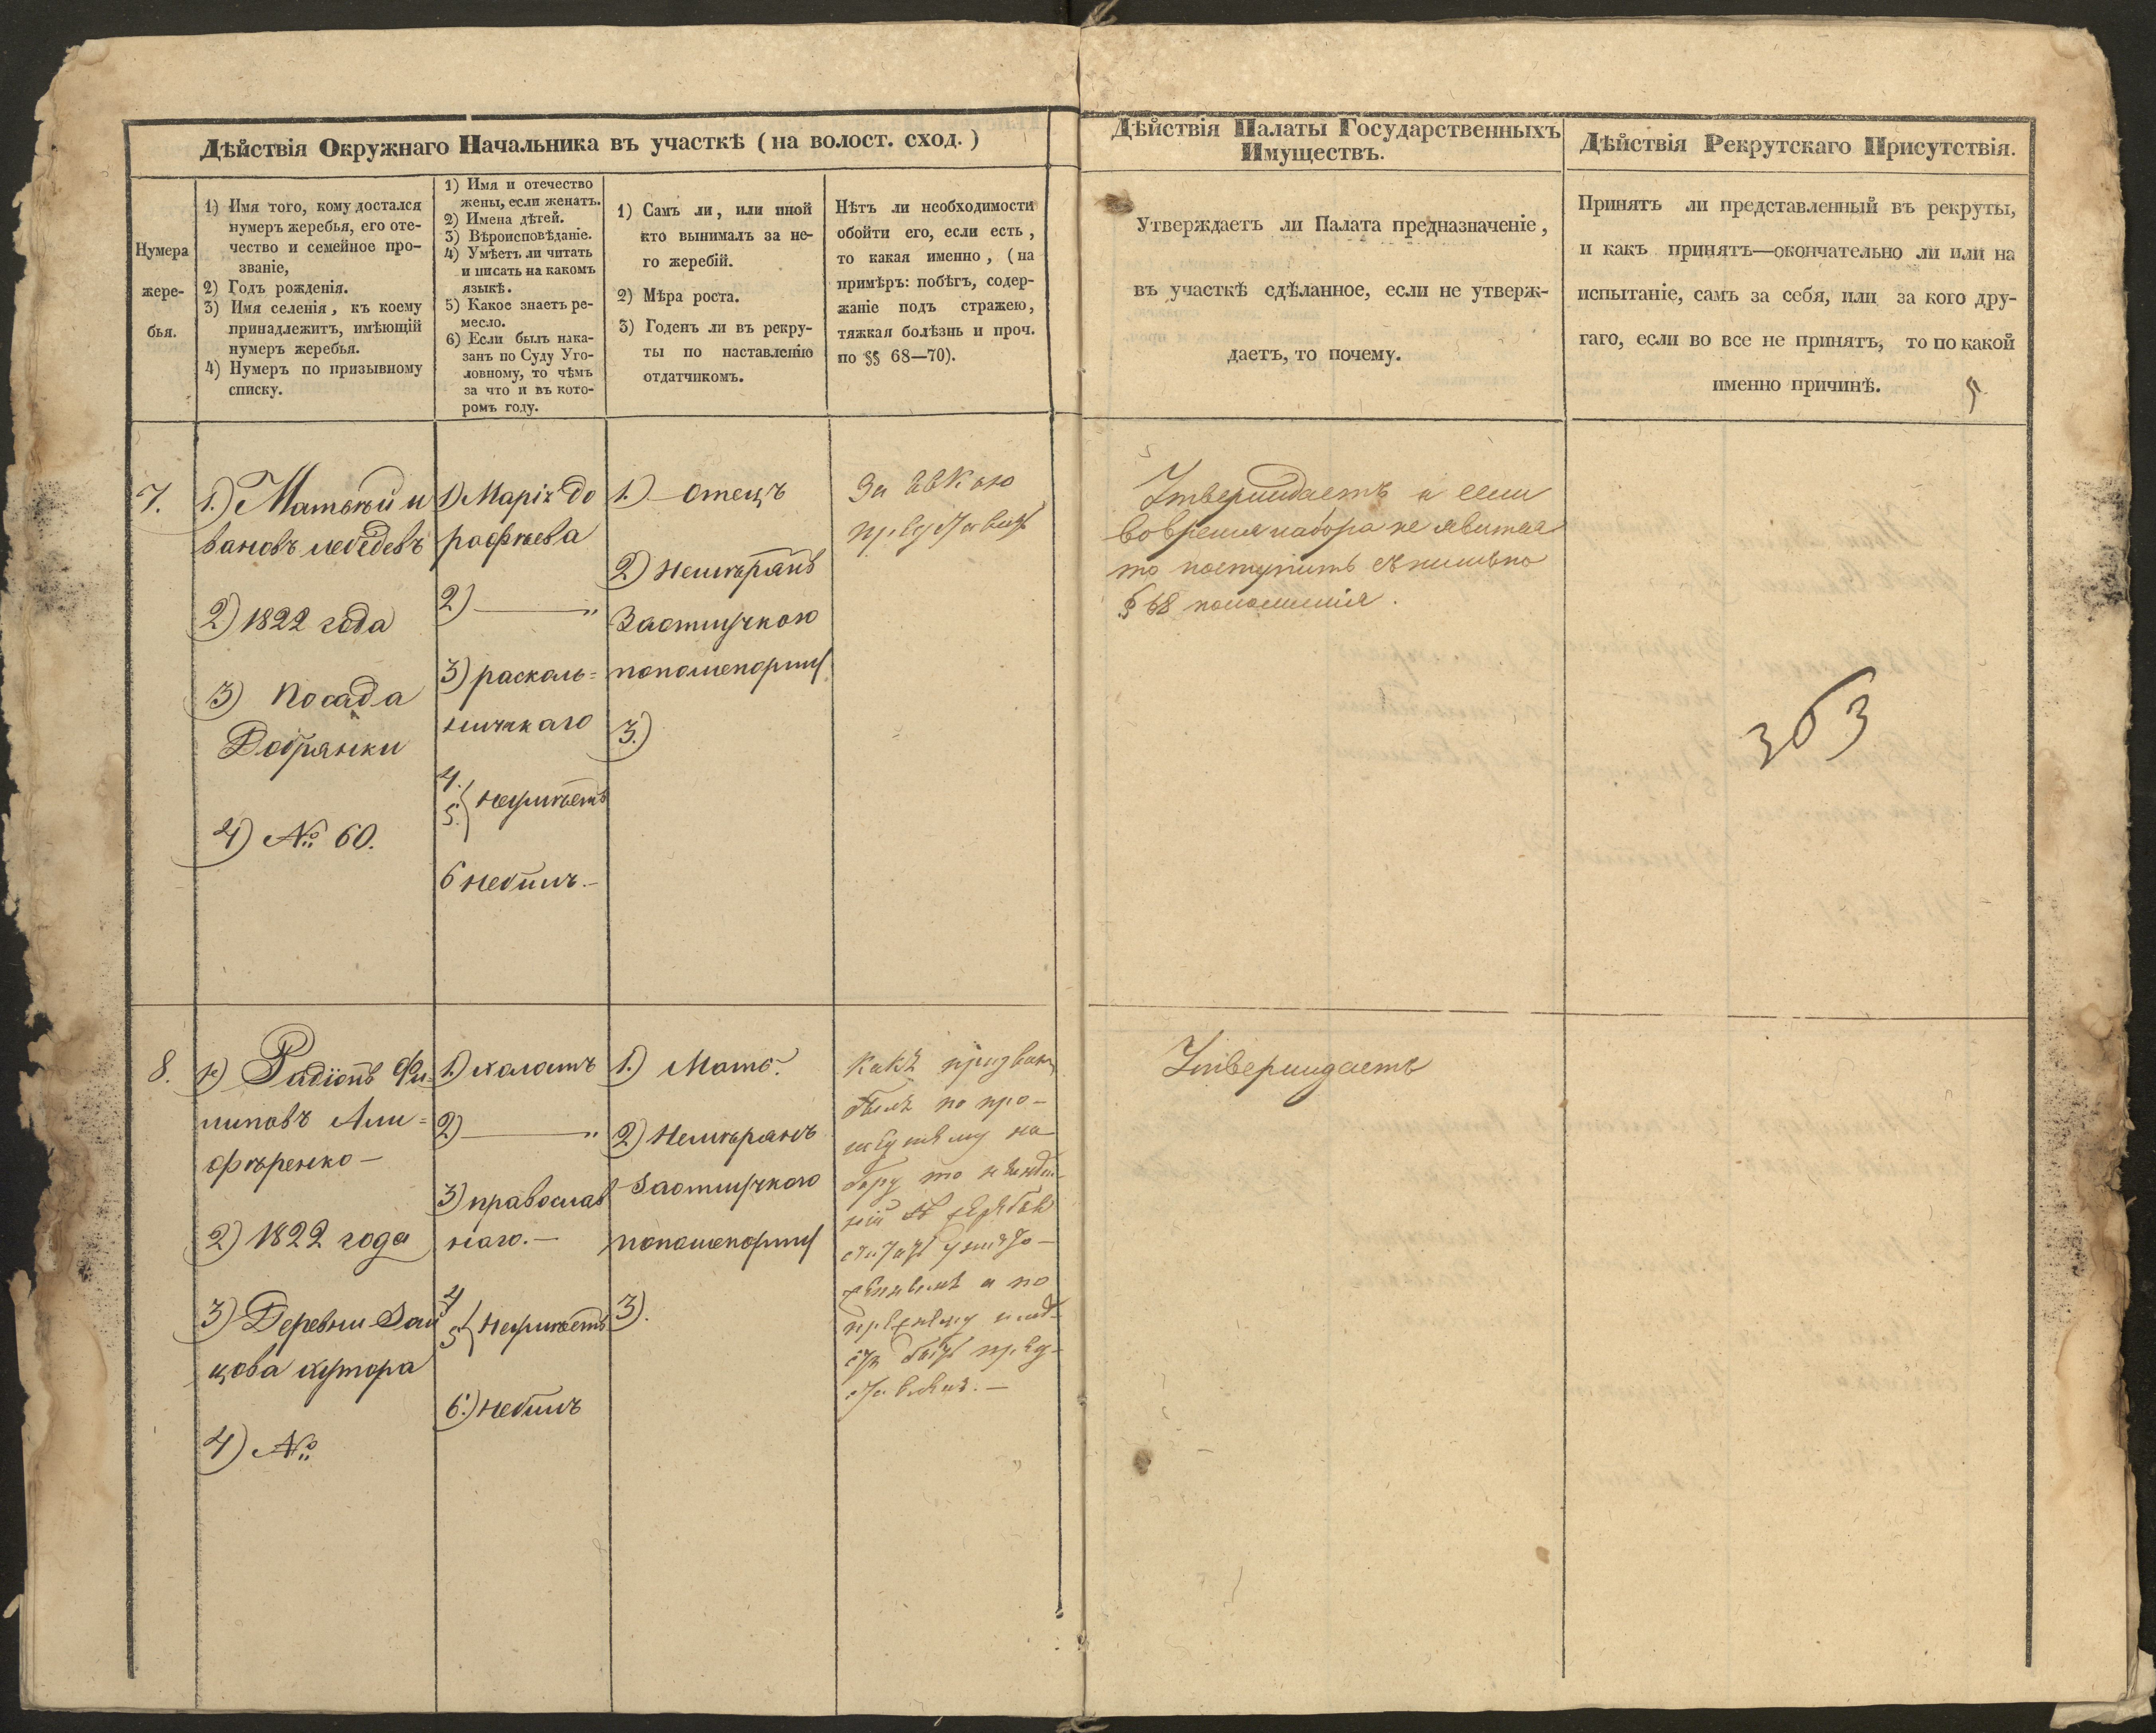 Дѣйствія Окружнаго Начальника въ участкѣ (на волост. сход.)
Нумера
жере-
бья.
1) Имя того, кому достался
нумеръ жеребья, его оте-
чество и семейное про-
званіе,
2) Годъ рожденія.
3) Имя селенія, къ коему
принадлежитъ, имѣющій
нумеръ жеребья.
4) Нумеръ по призывному
списку.
1) Имя и отечество
жены, если женатъ.
2) Имена дѣтей.
3) Вѣроисповѣданіе.
4) Умѣетъ ли читать
и писать на какомъ
языкѣ.
5) Какое знаетъ ре-
месло.
6) Если былъ нака-
занъ по Суду Уго-
ловному, то чѣмъ
за что и въ кото-
ромъ году.
1) Самъ ли, или иной
кто вынималъ за не-
го жеребій.
2) Мѣра роста.
3) Годенъ ли въ рекру-
ты по наставленію
отдатчикомъ.
Нѣтъ ли необходимости
обойти его, если есть,
то какая именно, (на
примѣръ: побѣгъ, содер-
жаніе подъ стражею,
тяжкая болѣзнь и проч.
по §§ 68—70).
Дѣйствія Палаты Государственныхъ
Имуществъ.
Утверждаетъ ли Палата предназначеніе,
въ участкѣ сдѣланное, если не утверж-
даетъ, то почему.
Дѣйствія Рекрутскаго Присутствія.
Принятъ ли представленный въ рекруты,
и какъ принятъ—окончательно ли или на
испытаніе, самъ за себя, или за кого дру-
гаго, если во все не принятъ, то по какой
именно причинѣ.
7.
1.) Матвѣй и
вановъ лебедевъ
2) 1822 года
3) Посада
Добрянки
4) № 60.
1) Марія До
рофѣева
2) — "
3) расколь=
ничкаго
4.
5. неумѣетъ
6 небылъ.-
1.) отецъ
2) Немѣрянъ
Заотлучкою
3.)
За явкою
Утверждаетъ а если
вовремя набора не явится
то поступить
§ 68 положенія.
363
8.
1.) Радіонъ Фи-
липовъ Али=
фѣренко —
2) 1822 года
3) Деревни Зай
цова хутора
4) №
1.) холостъ
2) — "
3) православ
наго. —
4
5 неумѣетъ
6.) небылъ
1.) Мать.
2) Немѣрянъ
Заотлучкою
3).
былъ по про-
бору то
Утверждаетъ